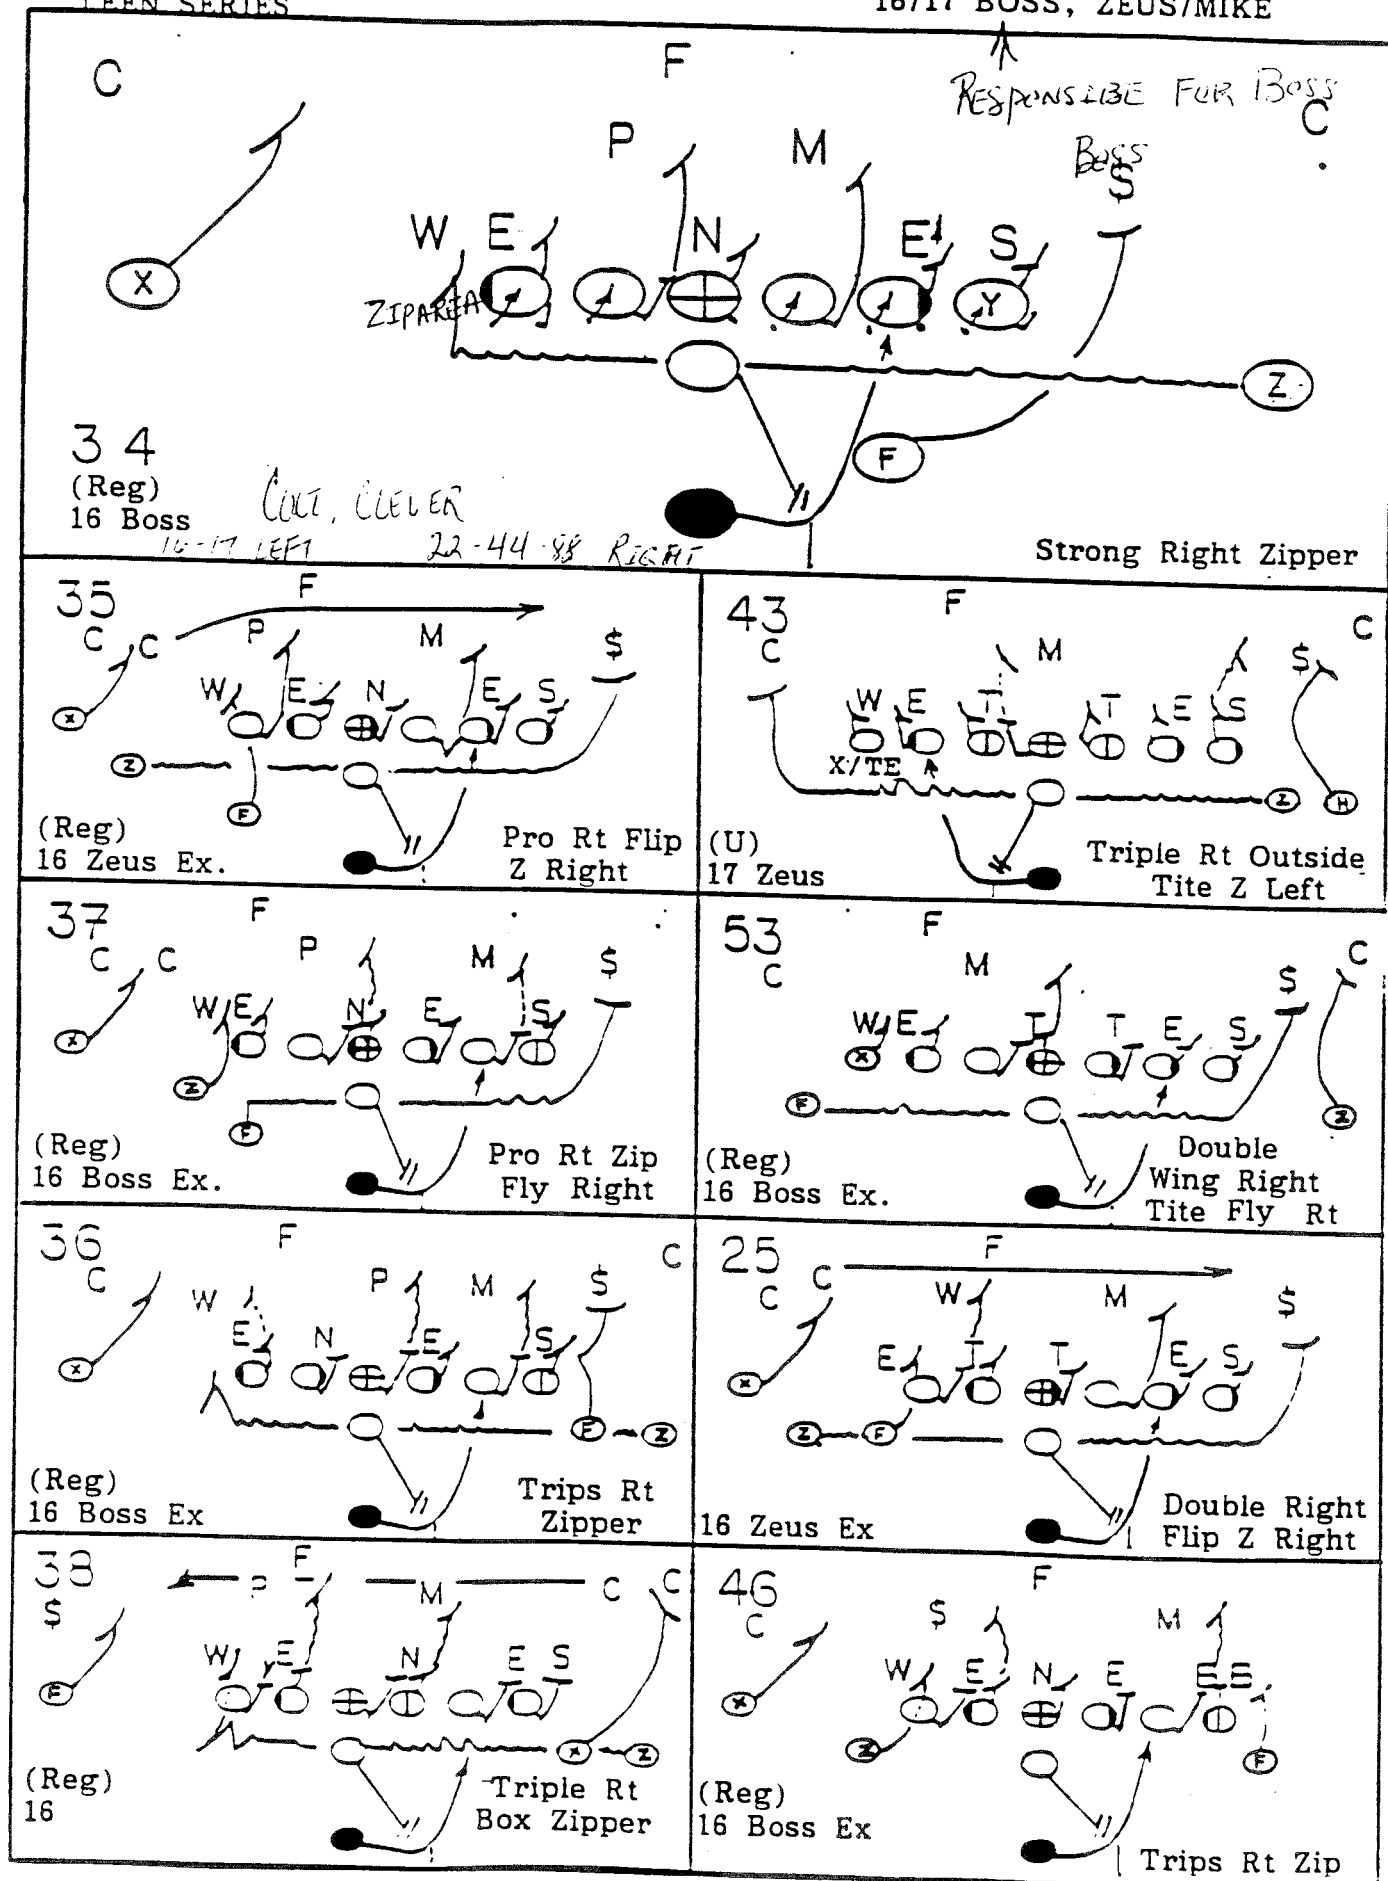 TEEN SERIES
16/17 BOSS, ZEUS/MIKE
RESPONSIBE FOR BOSS
BOSS
C F C
P M $
W E N E S
X Y
ZIPAREA
Z
F
34
(Reg)
16 Boss
COLT, CLEVER
16-17 LEFT 22-44-88 RIGHT
Strong Right Zipper
35
F
C C P M $
W E N E S
X
Z
F
(Reg)
16 Zeus Ex.
Pro Rt Flip
Z Right
43
F C
C M $
W E T T E S
X/TE
Z H
(U)
17 Zeus
Triple Rt Outside
Tite Z Left
37
F
C C P M $
W E N E S
X
Z
F
(Reg)
16 Boss Ex.
Pro Rt Zip
Fly Right
53
F C
C M $
W E T T E S
X
F Z
(Reg)
16 Boss Ex.
Double
Wing Right
Tite Fly Rt
36
F C
C W P M $
E N E S
X
F Z
(Reg)
16 Boss Ex
Trips Rt
Zipper
25
F
C C W M $
E T T E S
X
Z F
16 Zeus Ex
Double Right
Flip Z Right
38
F
$ P M C C
W E N E S
F
X Z
(Reg)
16
Triple Rt
Box Zipper
46
F
C $ M
W E N E E B
X
Z F
(Reg)
16 Boss Ex
Trips Rt Zip